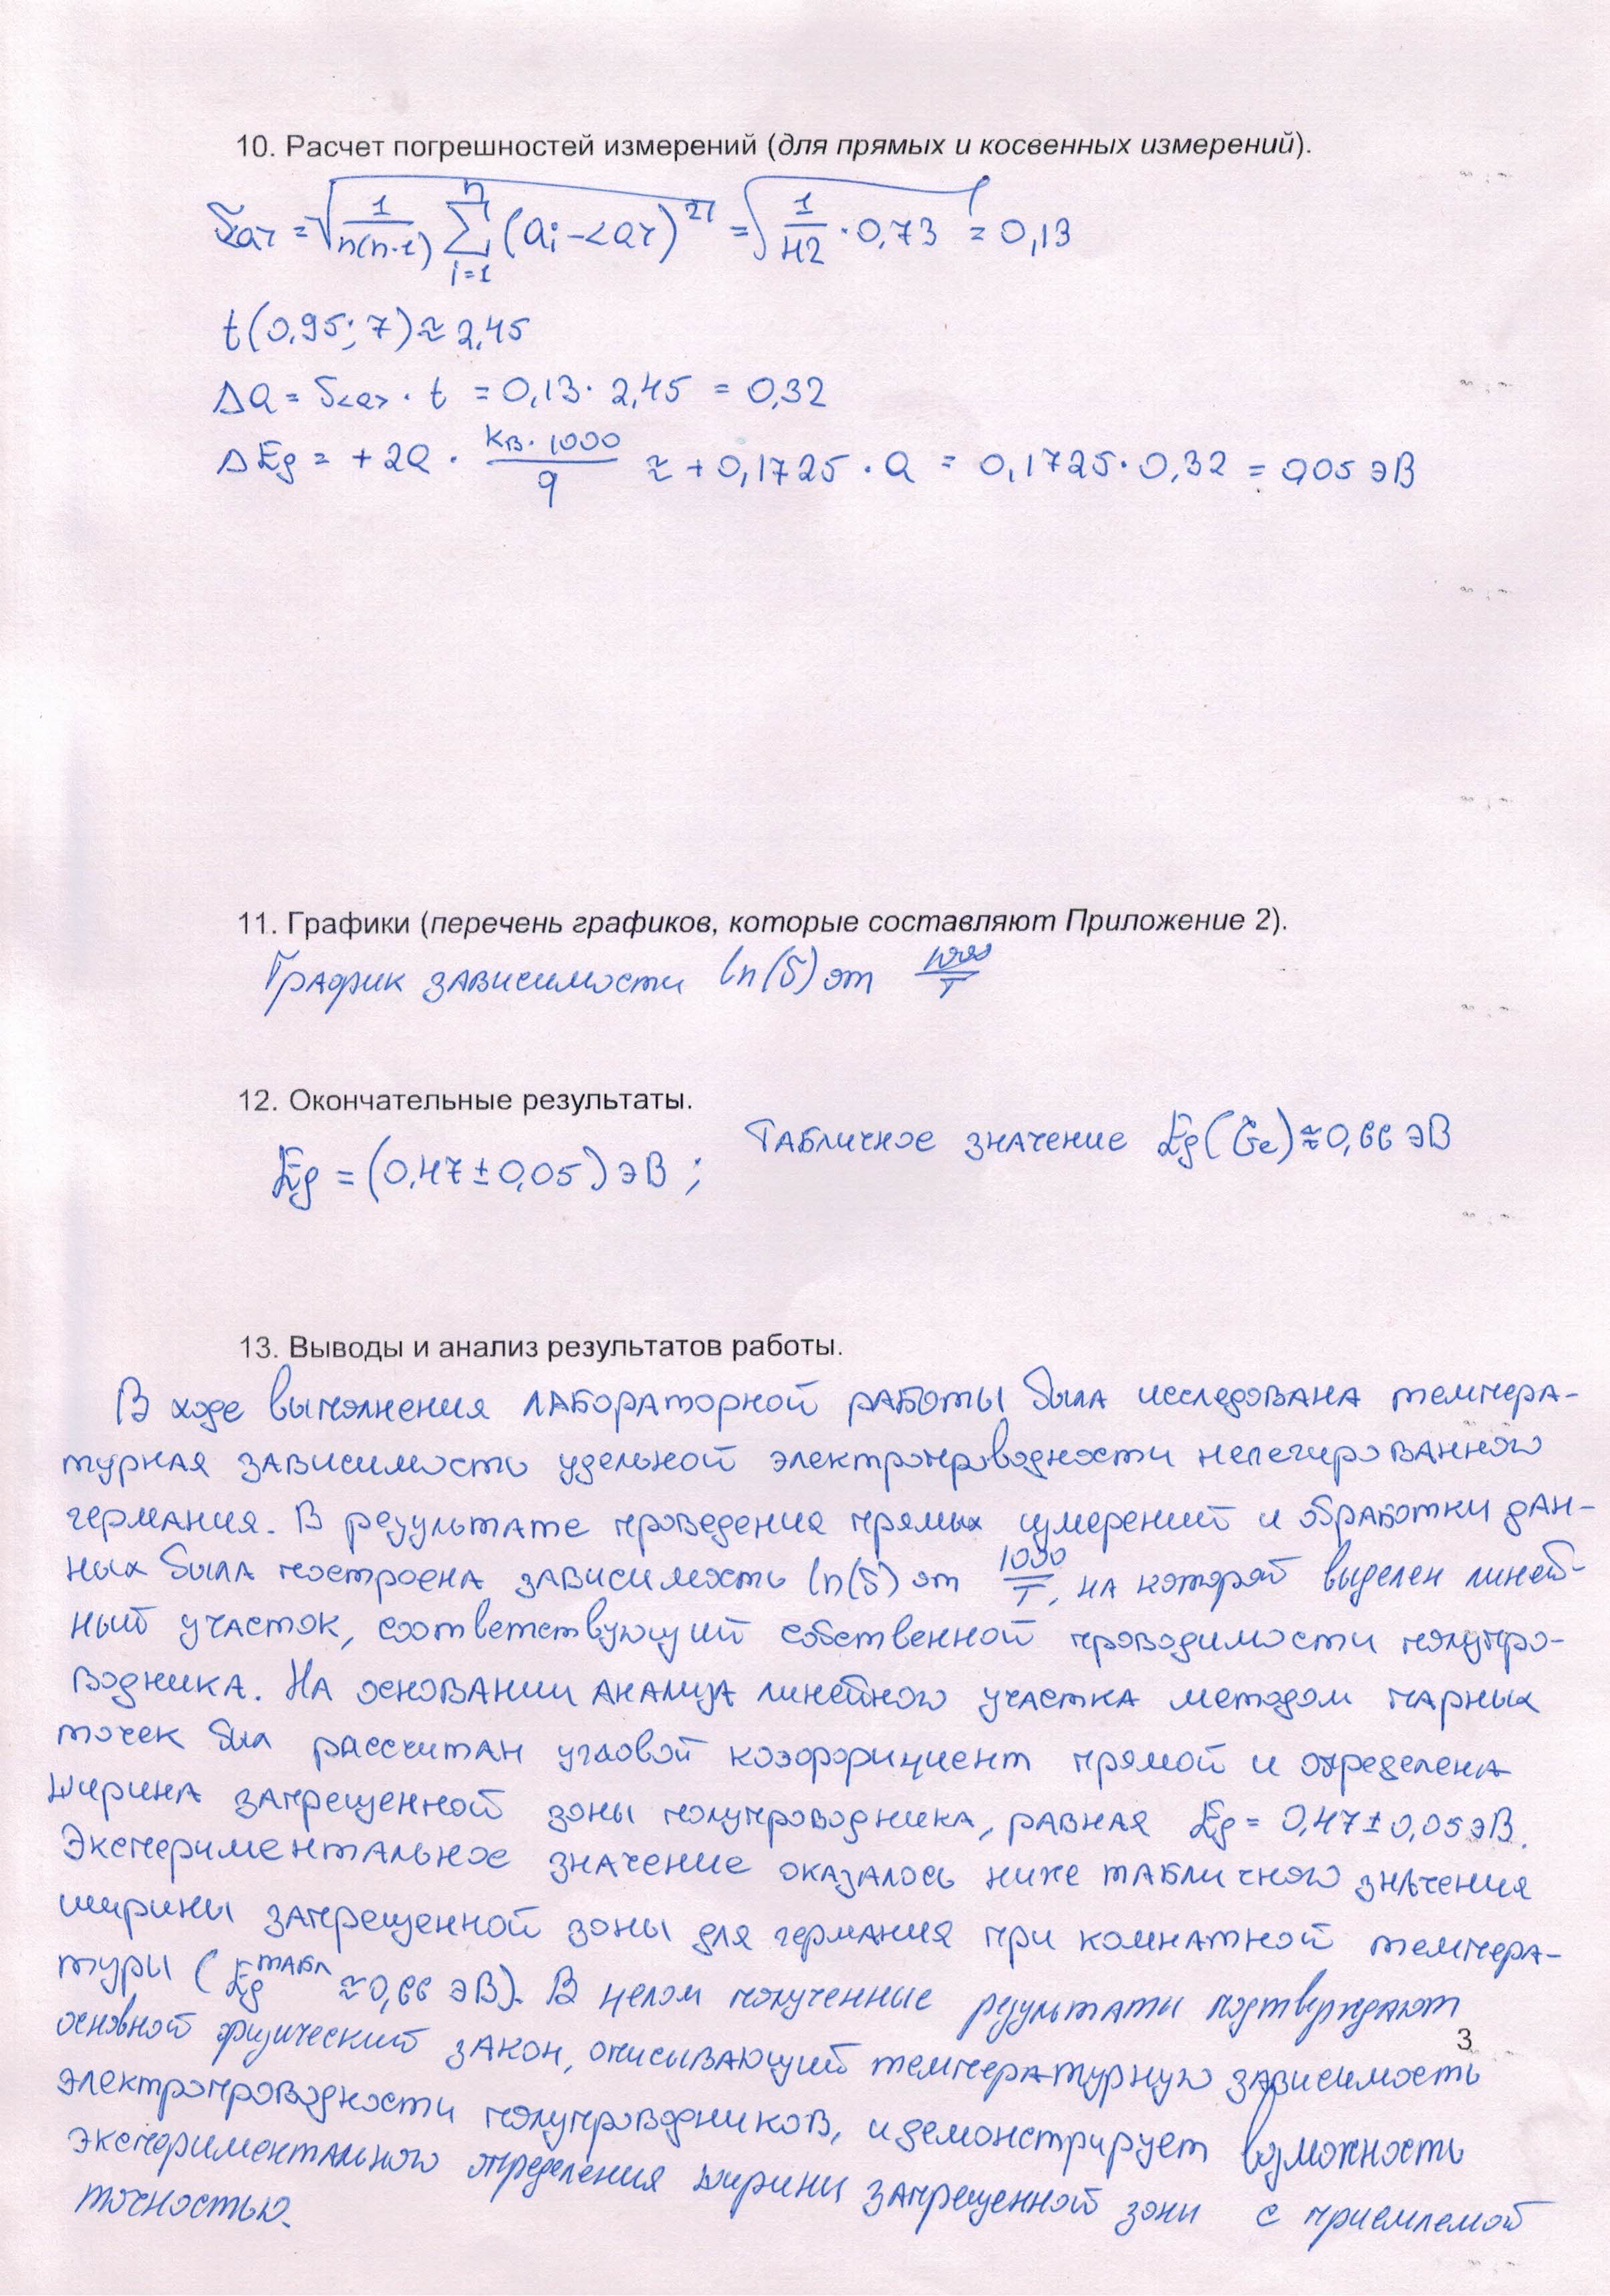 10. Расчет погрешностей измерений (для прямых и косвенных измерений).
S<a> = √(1/(n(n-1)) Σ_{i=1}^{n} (ai - <a>)²) = √(1/42 · 0,73) = 0,13
t(0,95; 7) ≈ 2,45
Δa = S<a> · t = 0,13 · 2,45 = 0,32
ΔEg = + 2a · (kв · 1000)/q ≈ + 0,1725 · a = 0,1725 · 0,32 = 0,05 эВ
11. Графики (перечень графиков, которые составляют Приложение 2).
График зависимости ln(σ) от 1000/T
12. Окончательные результаты.
Eg = (0,47 ± 0,05) эВ ; Табличное значение Eg(Ge) ≈ 0,66 эВ
13. Выводы и анализ результатов работы.
В ходе выполнения лабораторной работы была исследована темпера-
турная зависимость удельной электропроводности нелегированного
германия. В результате проведения прямых измерений и обработки дан-
ных была построена зависимость ln(σ) от 1000/T, на которой выделен линей-
ный участок, соответствующий собственной проводимости полупро-
водника. На основании анализа линейного участка методом парных
точек был рассчитан угловой коэффициент прямой и определена
ширина запрещенной зоны полупроводника, равная Eg = 0,47 ± 0,05 эВ.
Экспериментальное значение оказалось ниже табличного значения
ширины запрещенной зоны для германия при комнатной темпера-
туры (Eg табл ≈ 0,66 эВ). В целом полученные результаты подтверждают
основной физический закон, описывающий температурную зависимость
3
электропроводности полупроводников, и демонстрирует возможность
экспериментального определения ширины запрещенной зоны с приемлемой
точностью.